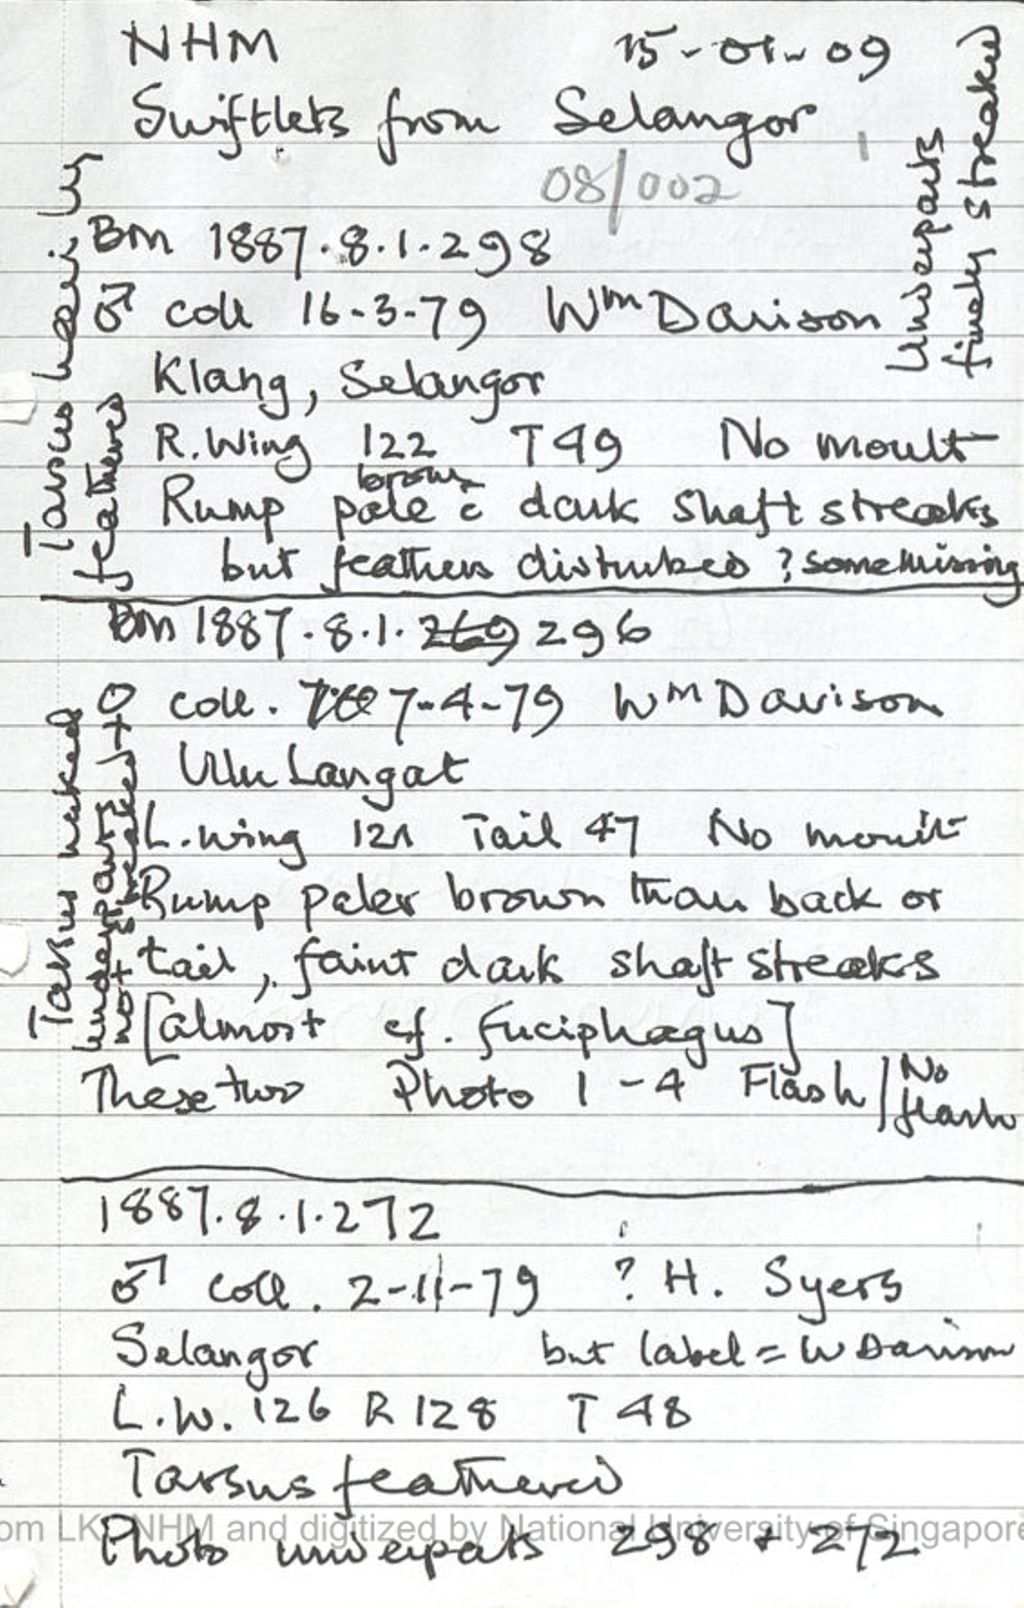 NHM 15-01-09
Swiftlets from Selangor
08/002
Underparts
finely streaked
Tarsus heavily
feathered
BM 1887.8.1.298
♂ coll 16-3-79 Wm Davison
Klang, Selangor
R. Wing 122 T 49 No moult
brown
Rump pale c̄ dark shaft streaks
but feathers disturbed ? some missing
BM 1887.8.1.269 296
♀ coll. 7-4-79 WM Davison
Ulu Langat
Tarsus naked
underparts
not streaked
L. wing 121 Tail 47 No moult
Rump paler brown than back or
tail, faint dark shaft streaks
[almost cf. fuciphagus]
These two Photo 1-4 Flash/No
flash
1887.8.1.272
♂ coll. 2-11-79 ? H. Syers
Selangor but label = W Davison
L.W. 126 R 128 T 48
Tarsus feathered
Photo underparts 298 + 272
om LKCNHM and digitized by National University of Singapore